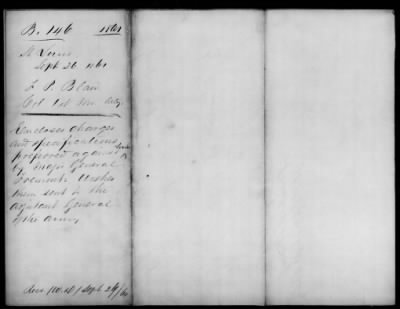 B. 146 1861
St Louis
Sept 26 1861
F. P. Blair
Col 1st Mo Arty.
Encloses charges
and specifications
preferred against him
by Major General
Fremont. Wishes
them sent to the
Adjutant General
of the army
Recd Sept 26/61